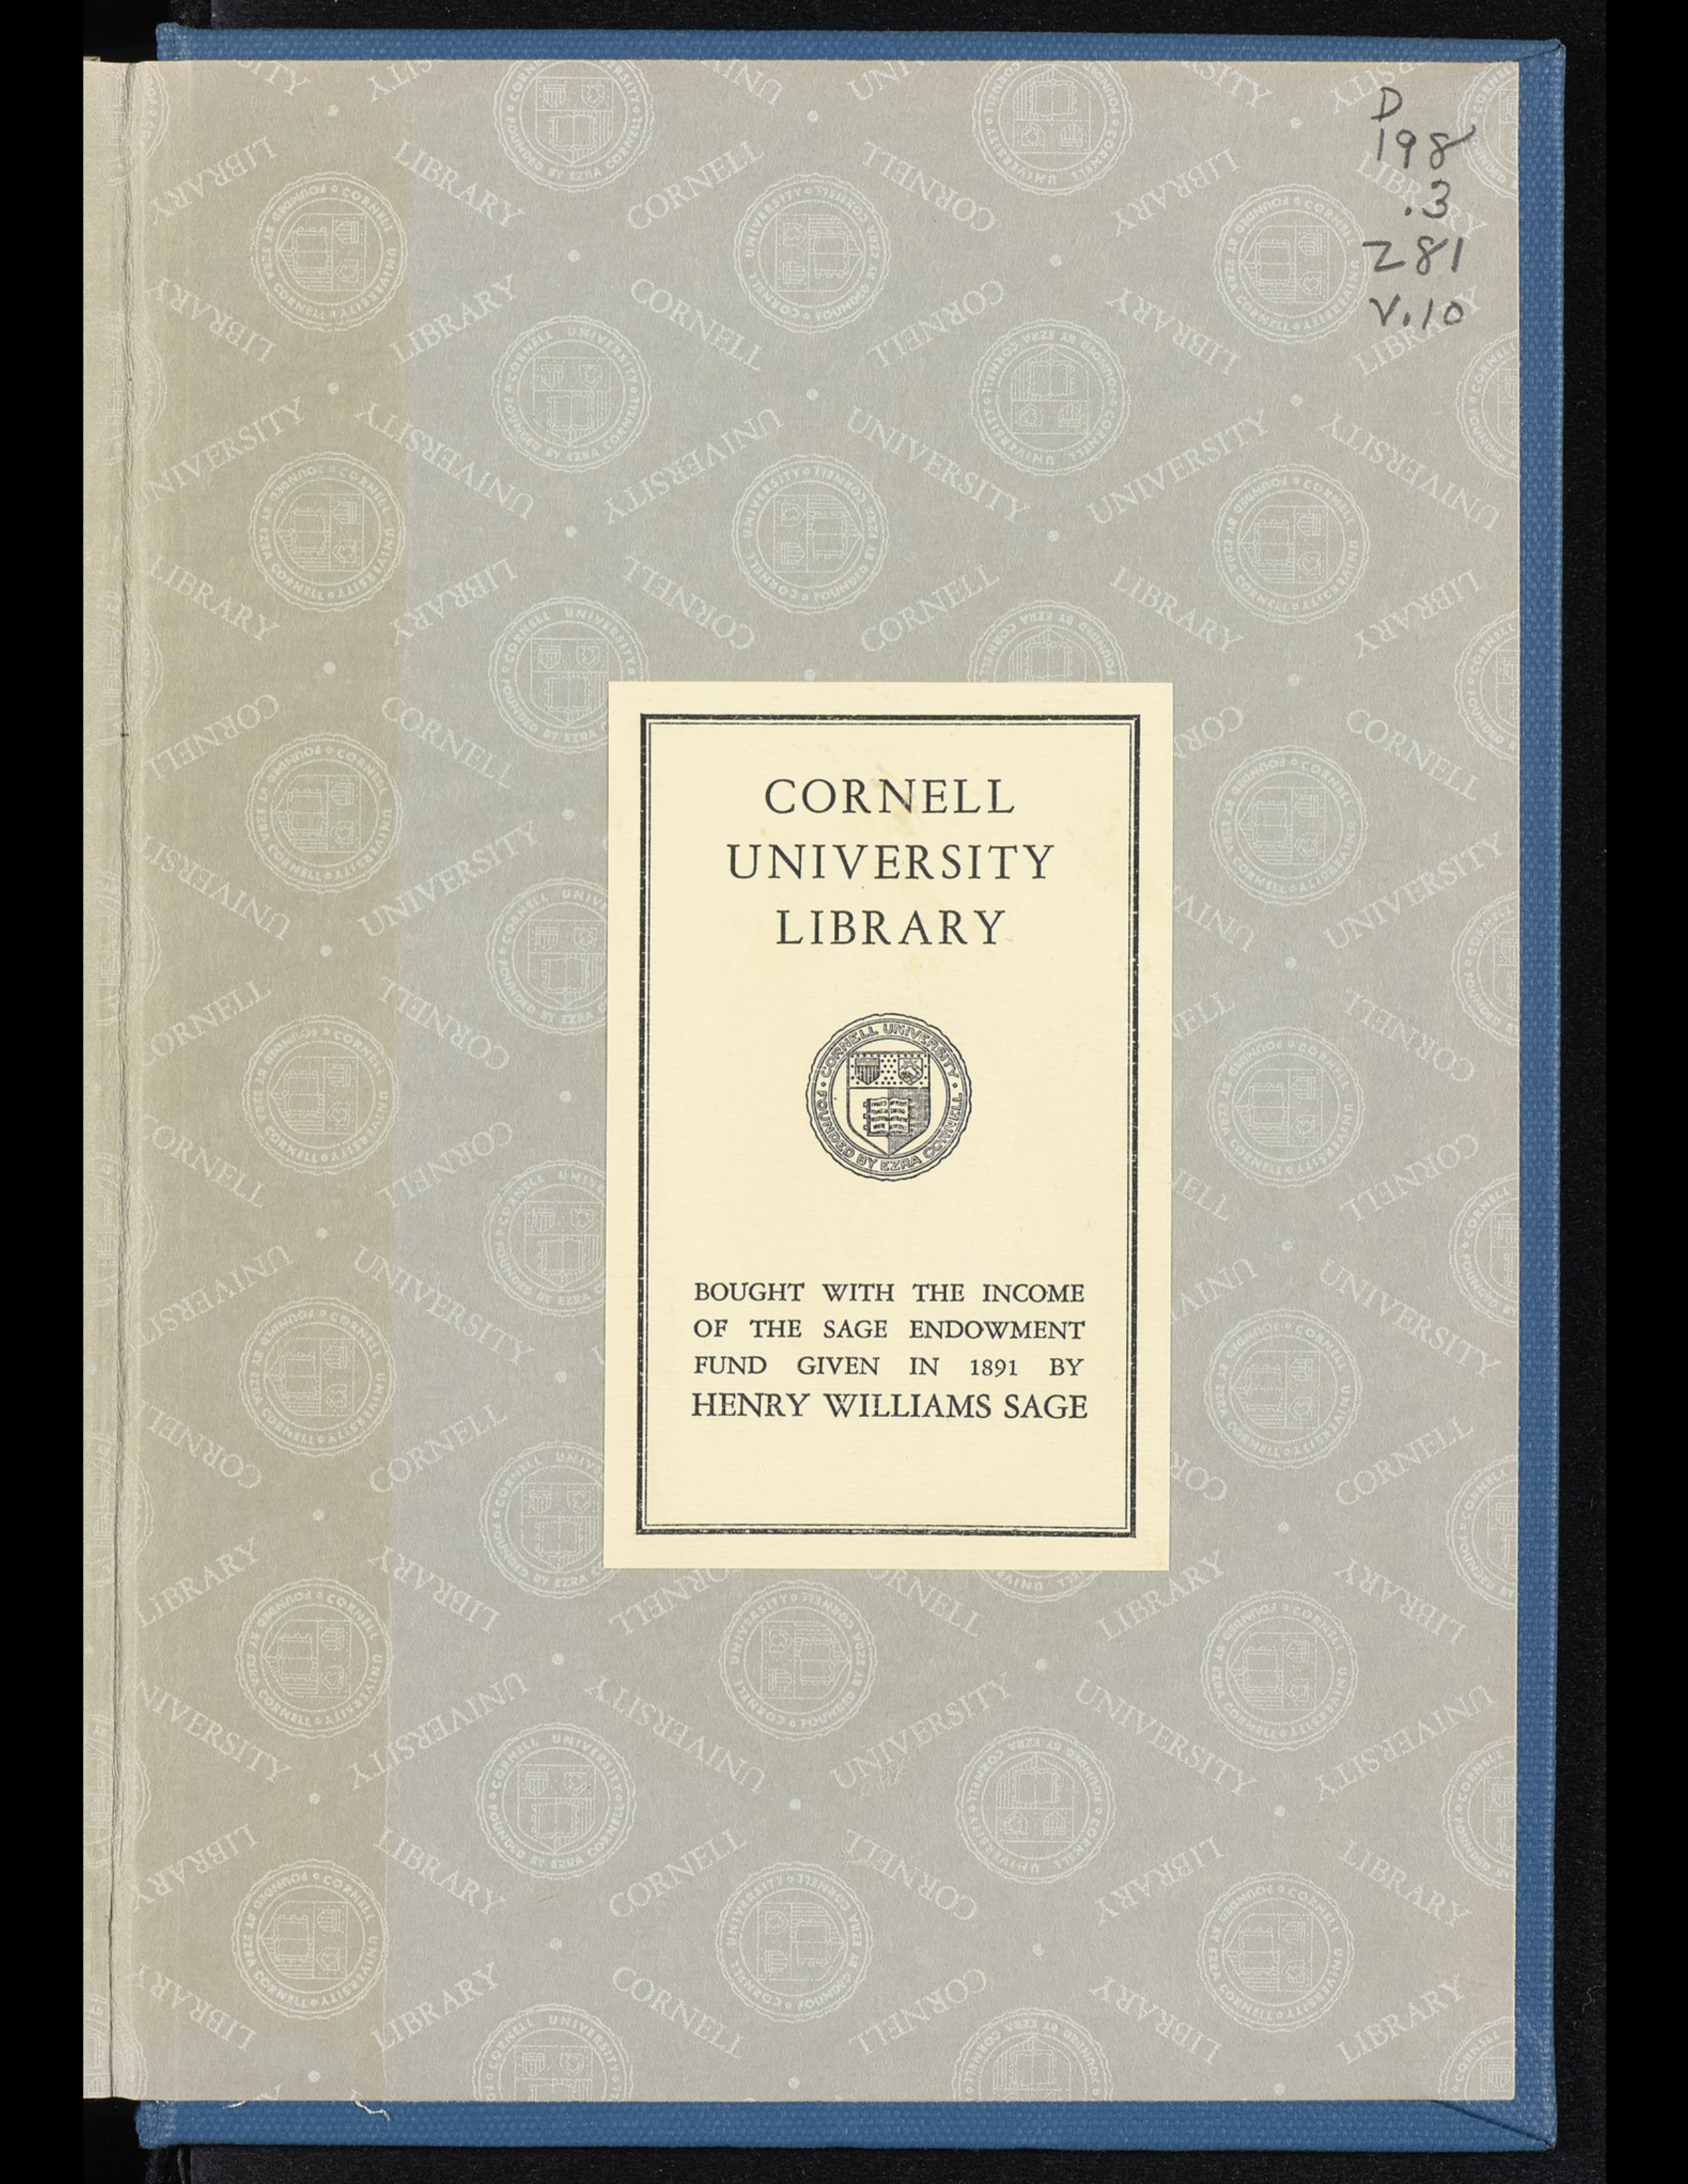 D
198
.3
Z81
V.10
CORNELL
UNIVERSITY
LIBRARY
CORNELL UNIVERSITY
FOUNDED BY EZRA CORNELL
BOUGHT WITH THE INCOME
OF THE SAGE ENDOWMENT
FUND GIVEN IN 1891 BY
HENRY WILLIAMS SAGE